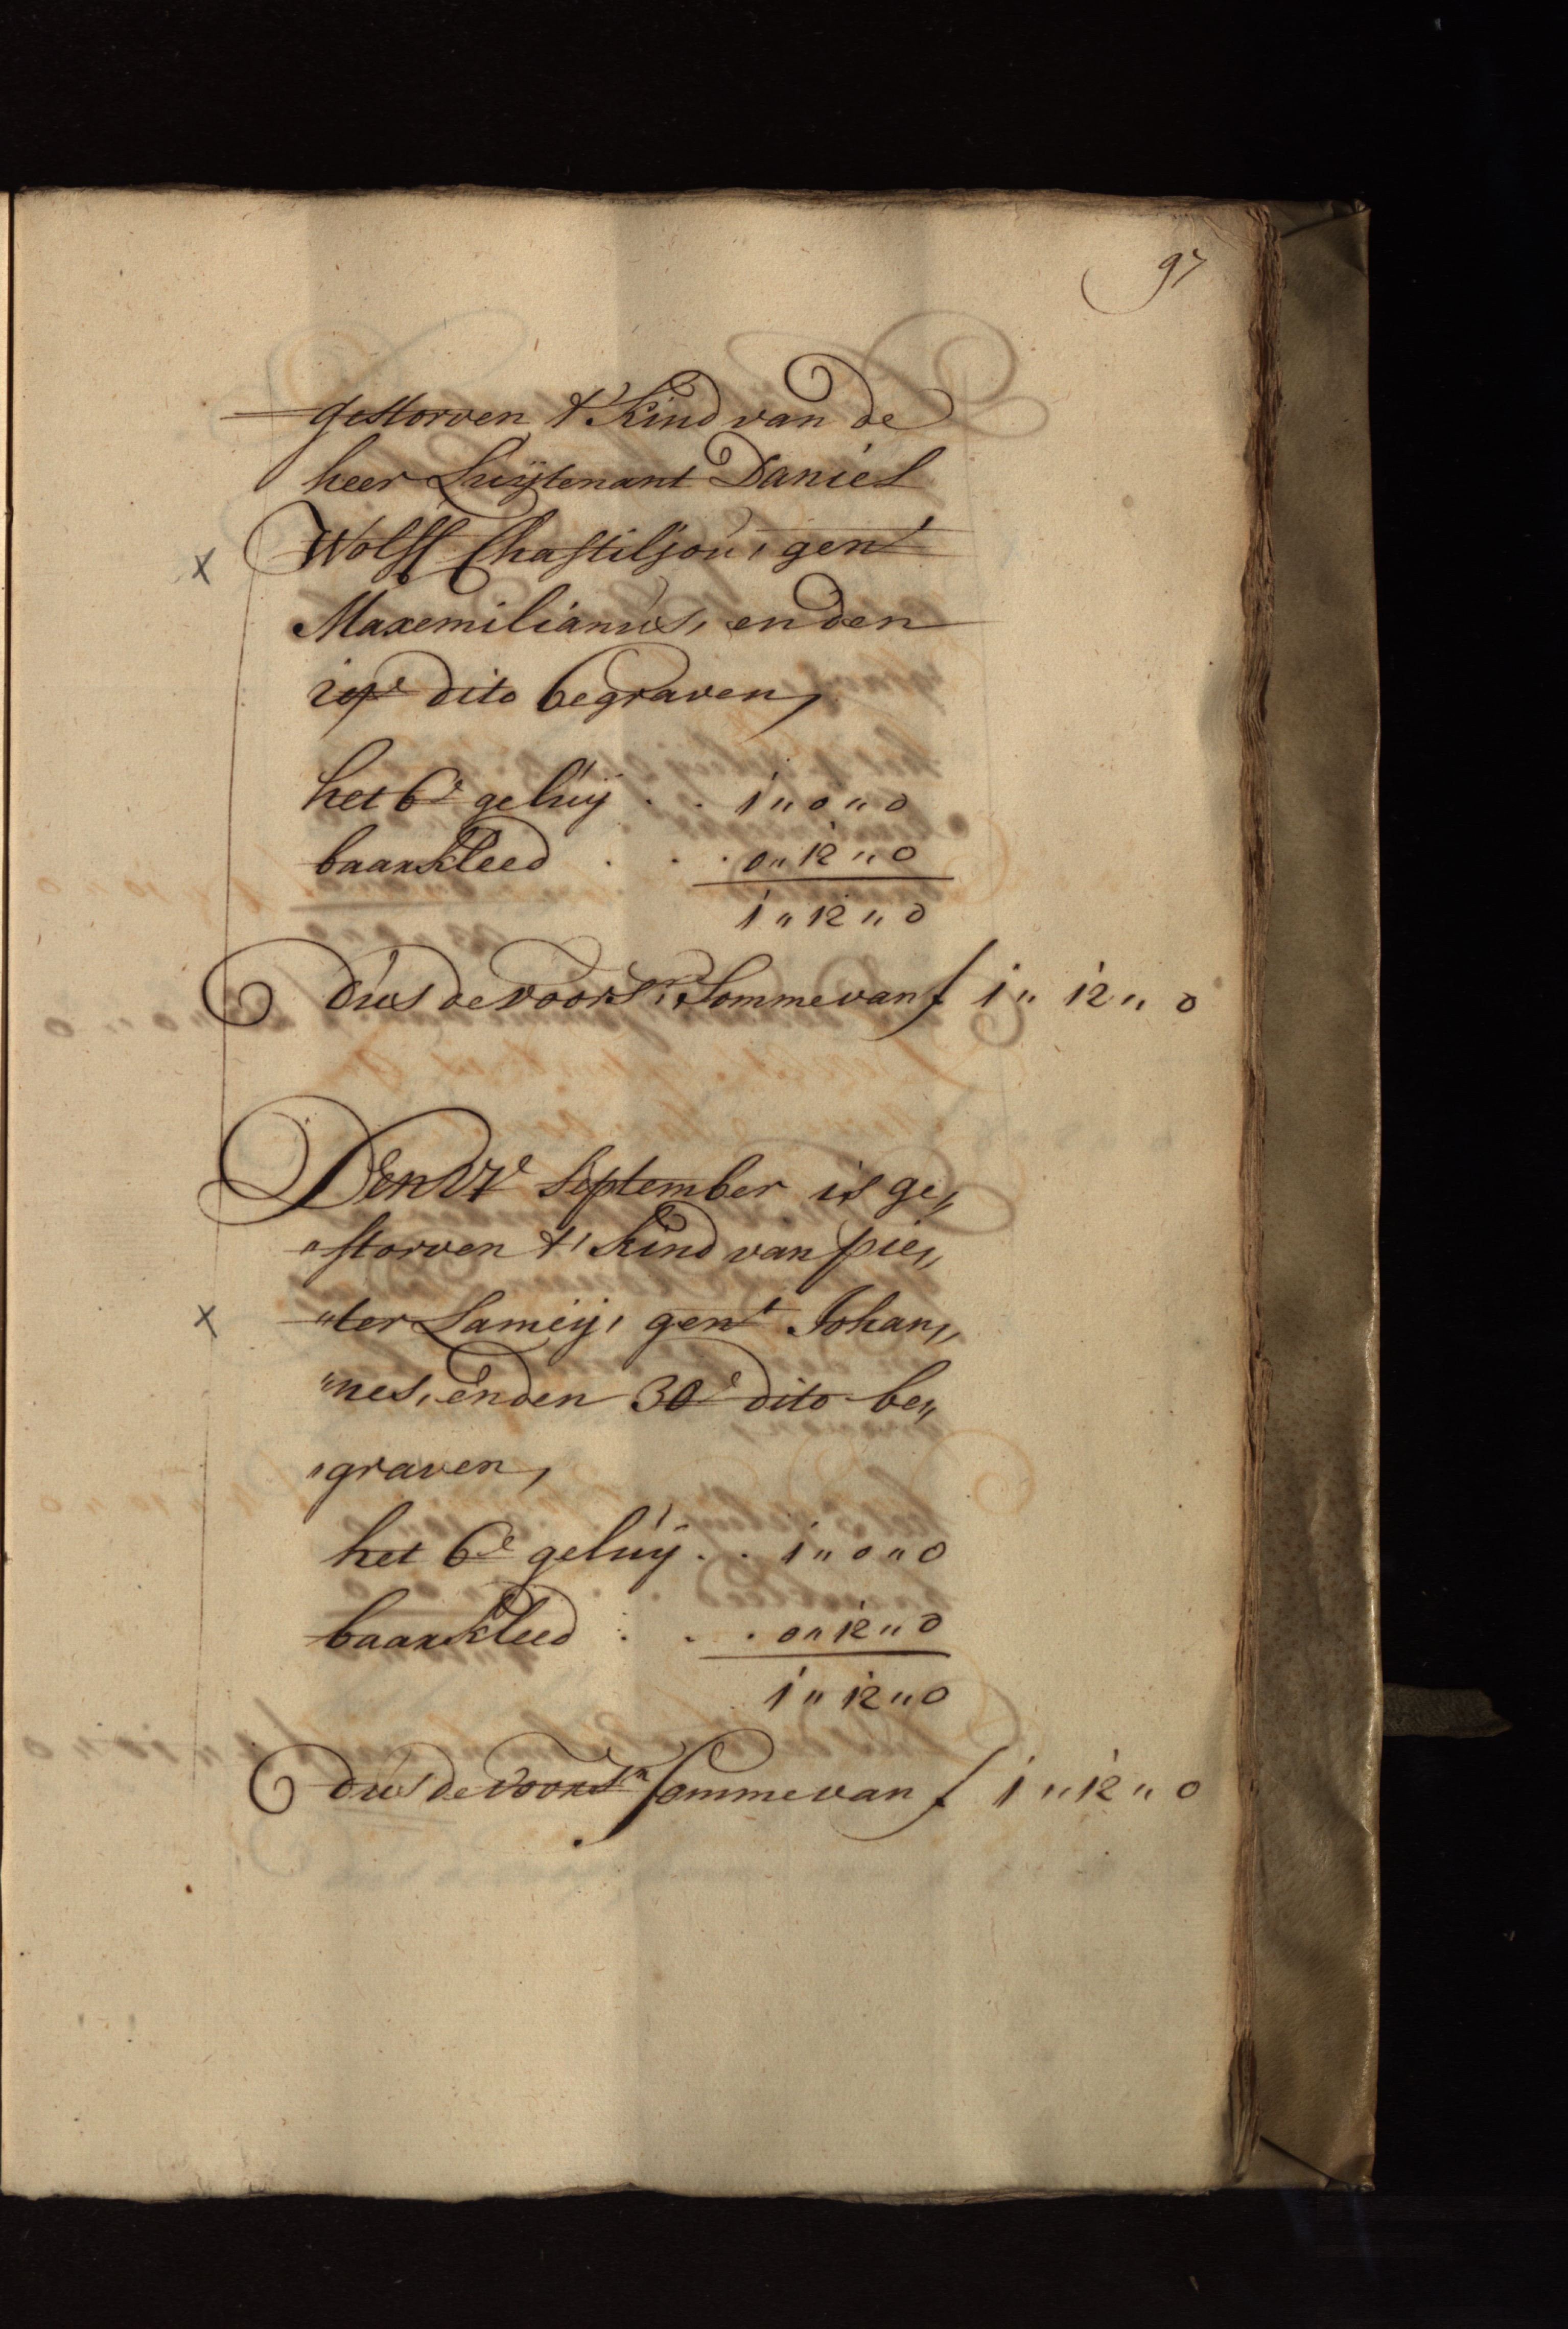 97
gestorven t' Kind van de
heer Luijtenant Daniel
x Wolff Chastiljou, gent
Maxemilianus, en den
dito begraven,
het 6e geluij . . 1 " 0 " 0
baarkleed . . . 0 " 12 " 0
1 " 12 " 0
dus de voors: Somme van f 1 " 12 " 0
Den 27e September is ge„
„storven t' Kind van pie„
x „ter Lameij, gent Johan„
„nes, en den 30e dito be„
„graven,
het 6e geluij . . 1 " 0 " 0
baarkleed . . . 0 " 12 " 0
1 " 12 " 0
dus de voorsn Somme van f 1 " 12 " 0